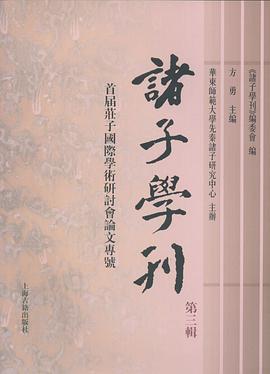 《諸子學刊》編委會 編
方勇 主編
華東師範大學先秦諸子研究中心 主辦
諸子學刊
第三輯
首屆莊子國際學術研討會論文專號
上海古籍出版社